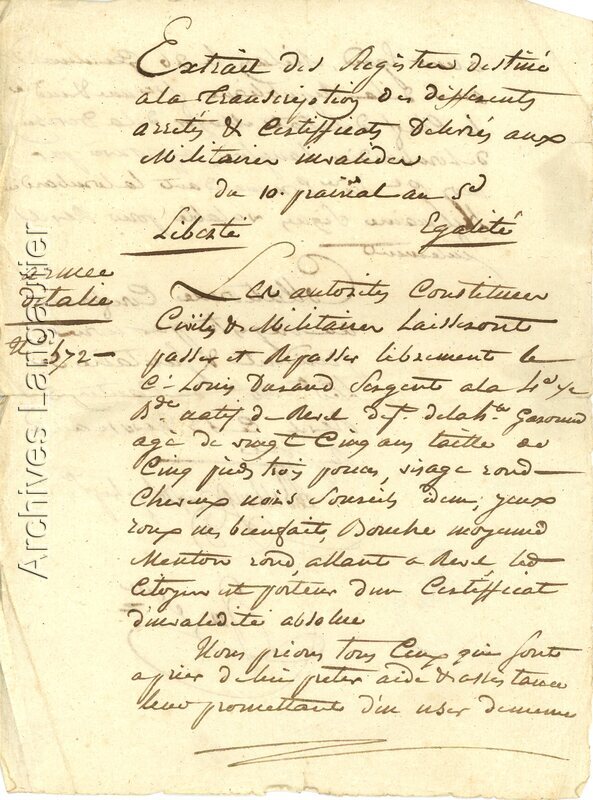 Extrait des Registres destiné
a la transcription des differents
arretés & Certificats Delivrés aux
Militaires invalides
du 10. prairial an 5e
Liberté Egalité
armée
d'italie
N. 572
Les autorités Constituées
Civils & Militaires Laisseront
passer et Repasser librement le
Cn Louis Durand Sergent a la 4e 1/2
Bde natif de Revel dept. de la hte Garonne
agé de vingt Cinq ans taille de
Cinq pieds trois pouces, visage rond
Cheveux noirs Sourcils idem, yeux
roux nes bienfait, Bouche moyenne
Menton rond, allant a Revel, led
Citoyen est porteur d'un Certificat
d'invalidité absolue
Nous prions tous Ceux qui sont
a prier de lui preter aide & assistance
leur promettant d'en user de meme
Archives Langautier